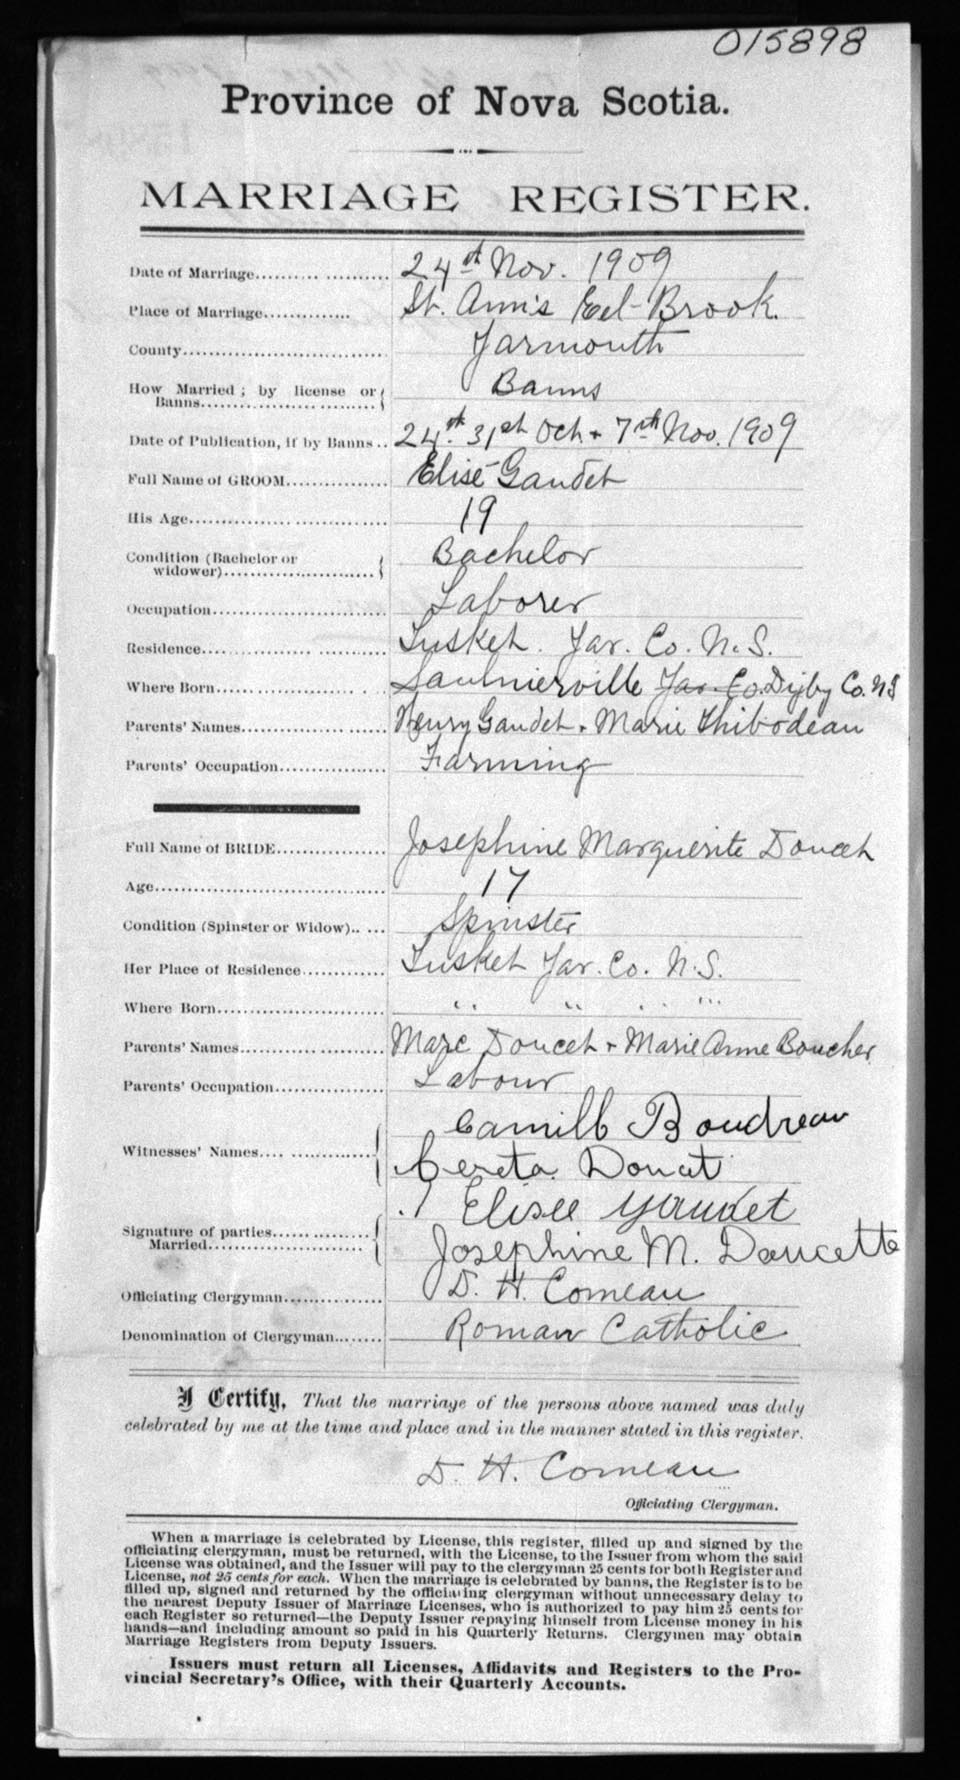 015898
Province of Nova Scotia.
MARRIAGE REGISTER.
Date of Marriage 24th Nov. 1909
Place of Marriage St. Ann's Eel-Brook
County Yarmouth
How Married; by license or Banns Banns
Date of Publication, if by Banns 24th 31st Oct + 7th Nov. 1909
Full Name of GROOM Elisé Gaudet
His Age 19
Condition (Bachelor or widower) Bachelor
Occupation Laborer
Residence Tusket. Yar. Co. N.S.
Where Born Saulnierville Yar. Co. Digby Co. N.S
Parents' Names Henry Gaudet + Marie Thibodeau
Parents' Occupation Farming
Full Name of BRIDE Josephine Marguerite Doucet
Age 17
Condition (Spinster or Widow) Spinster
Her Place of Residence Tusket Yar. Co. N.S.
Where Born " " " "
Parents' Names Marc Doucet + Marie Anne Boucher
Parents' Occupation Labour
Camill Boudreau
Witnesses' Names Doucet
Signature of parties Elisee Gaudet
Married Josephine M. Doucette
Officiating Clergyman D. H. Comeau
Denomination of Clergyman Roman Catholic
I Certify, That the marriage of the persons above named was duly
celebrated by me at the time and place and in the manner stated in this register.
D. H. Comeau
Officiating Clergyman.
When a marriage is celebrated by License, this register, filled up and signed by the
officiating clergyman, must be returned, with the License, to the Issuer from whom the said
License was obtained, and the Issuer will pay to the clergyman 25 cents for both Register and
License, not 25 cents for each. When the marriage is celebrated by banns, the Register is to be
filled up, signed and returned by the officiating clergyman without unnecessary delay to
the nearest Deputy Issuer of Marriage Licenses, who is authorized to pay him 25 cents for
each Register so returned—the Deputy Issuer repaying himself from License money in his
hands—and including amount so paid in his Quarterly Returns. Clergymen may obtain
Marriage Registers from Deputy Issuers.
Issuers must return all Licenses, Affidavits and Registers to the Pro-
vincial Secretary's Office, with their Quarterly Accounts.